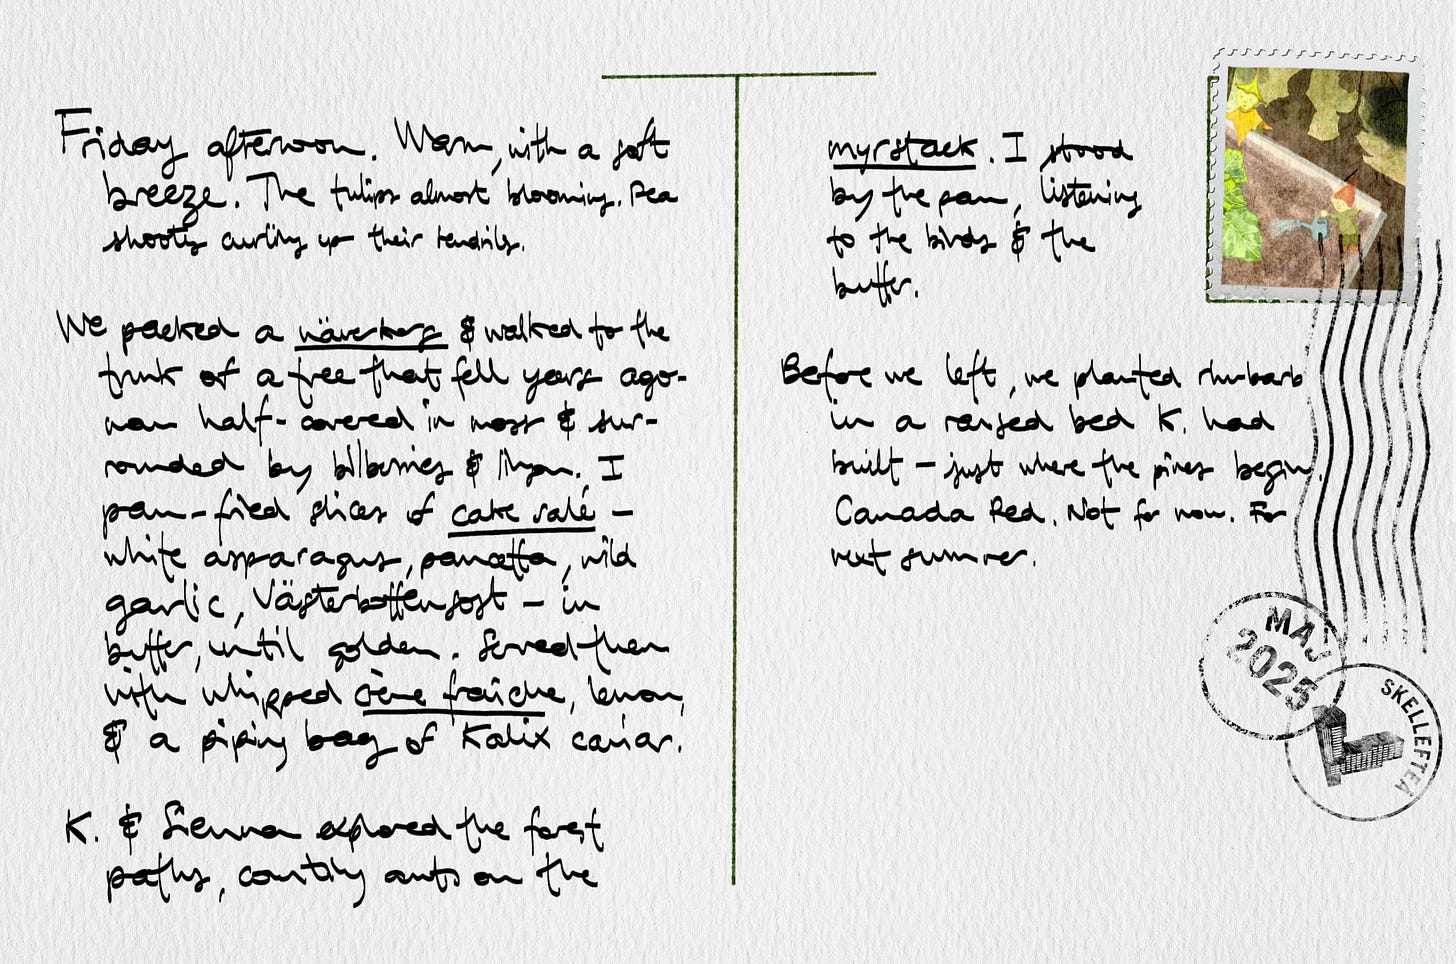 Friday afternoon. Warm, with a soft
breeze. The tulips almost blooming. Pea
shoots curling up their tendrils.
We packed a näverkorg & walked to the
trunk of a tree that fell years ago-
now half-covered in moss & sur-
rounded by bilberries & lingon. I
pan-fried slices of cake salé –
white asparagus, pancetta, wild
garlic, Västerbottensost – in
butter, until golden. Served them
with whipped crème fraîche, lemon,
& a piping bag of Kalix caviar.
K. & Sienna explored the forest
paths, counting ants on the
myrstack. I stood
by the pan, listening
to the birds & the
butter.
Before we left, we planted rhubarb
in a raised bed K. had
built – just where the pines begin.
Canada Red. Not for now. For
next summer.
MAJ
2025
SKELLEFTEÅ